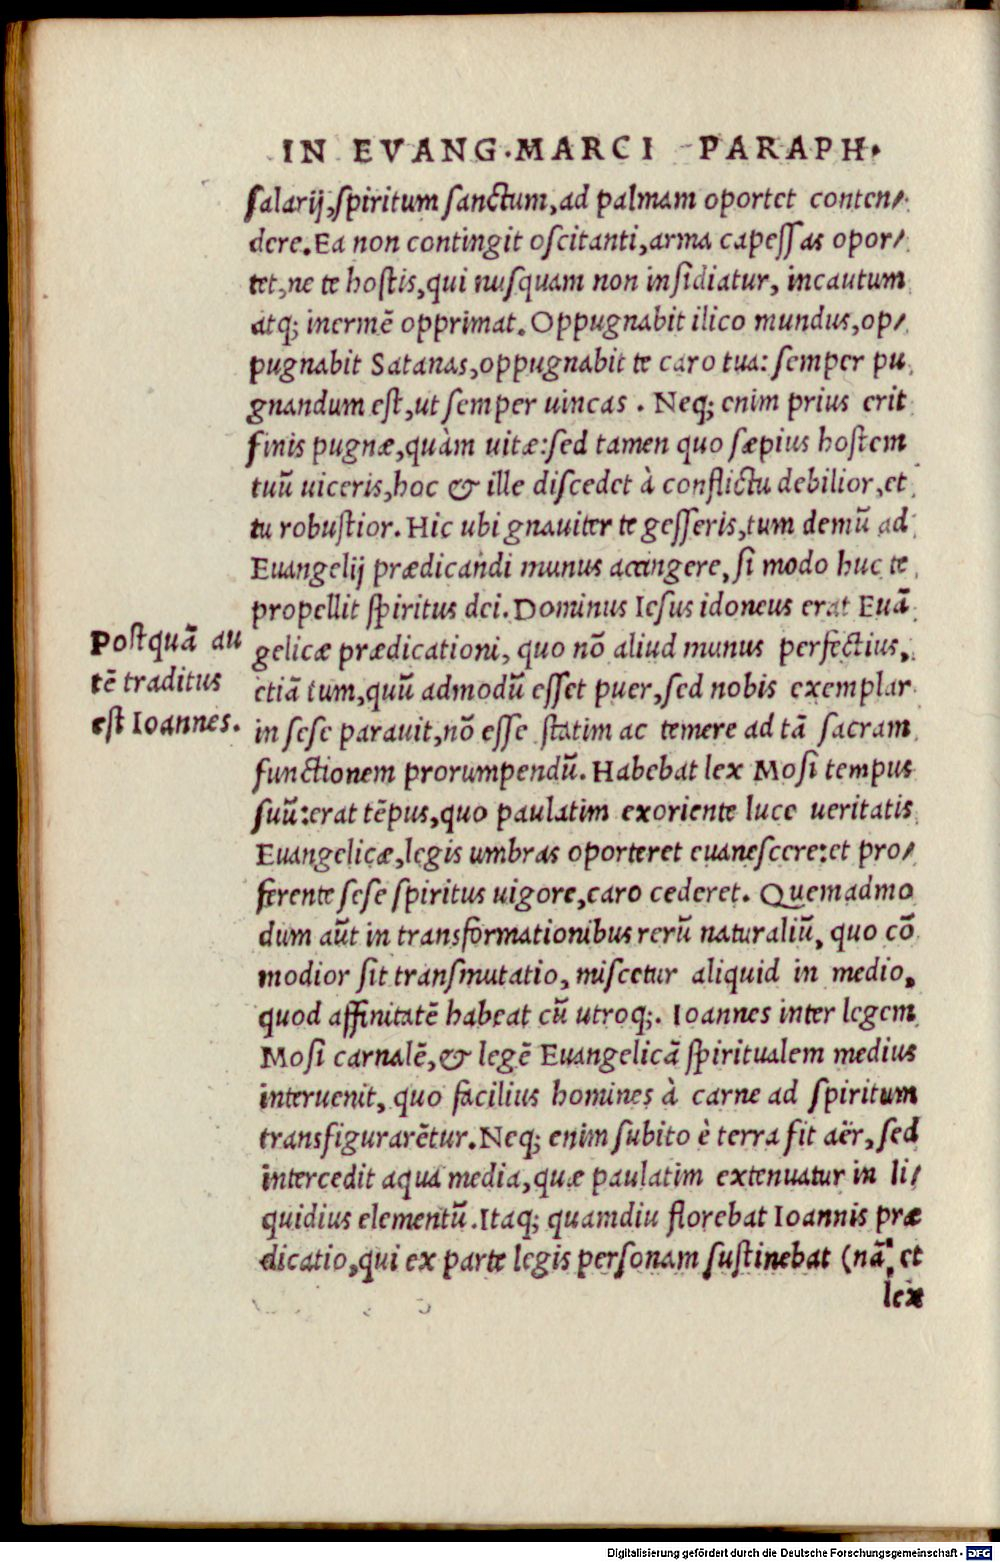 IN EVANG.MARCI PARAPH.
salarij,spiritum sanctum,ad palmam oportet conten/
dere.Ea non contingit oscitanti,arma capessas opor/
tet,ne te hostis,qui nusquam non insidiatur, incautum
atq; inermē opprimat.Oppugnabit ilico mundus,op/
pugnabit Satanas,oppugnabit te caro tua: semper pu
gnandum est,ut semper uincas . Neq; enim prius erit
finis pugnæ,quàm uitæ:sed tamen quo sæpius hostem
tuū uiceris,hoc & ille discedet à conflictu debilior,et
tu robustior.Hic ubi gnauiter te gesseris,tum demū ad
Euangelij prædicandi munus accingere, si modo huc te
propellit spiritus dei.Dominus Iesus idoneus erat Euā
gelicæ prædicationi, quo nō aliud munus perfectius,
etiā tum,quū admodū esset puer,sed nobis exemplar
in sese parauit,nō esse statim ac temere ad tā sacram
functionem prorumpendū. Habebat lex Mosi tempus
suū:erat tēpus,quo paulatim exoriente luce ueritatis
Euangelicæ,legis umbras oporteret euanescere:et pro/
ferente sese spiritus uigore,caro cederet. Quemadmo
dum aūt in transformationibus rerū naturaliū, quo cō
modior sit transmutatio, miscetur aliquid in medio,
quod affinitatē habeat cū utroq;. Ioannes inter legem
Mosi carnalē,& legē Euangelicā spiritualem medius
interuenit, quo facilius homines à carne ad spiritum
transfigurarētur.Neq; enim subito è terra fit aër, sed
intercedit aqua media,quæ paulatim extenuatur in li/
quidius elementū.Itaq; quamdiu florebat Ioannis præ
dicatio,qui ex parte legis personam sustinebat (nā et
lex
Postquā au
tē traditus
est Ioannes.
Digitalisierung gefördert durch die Deutsche Forschungsgemeinschaft - DFG